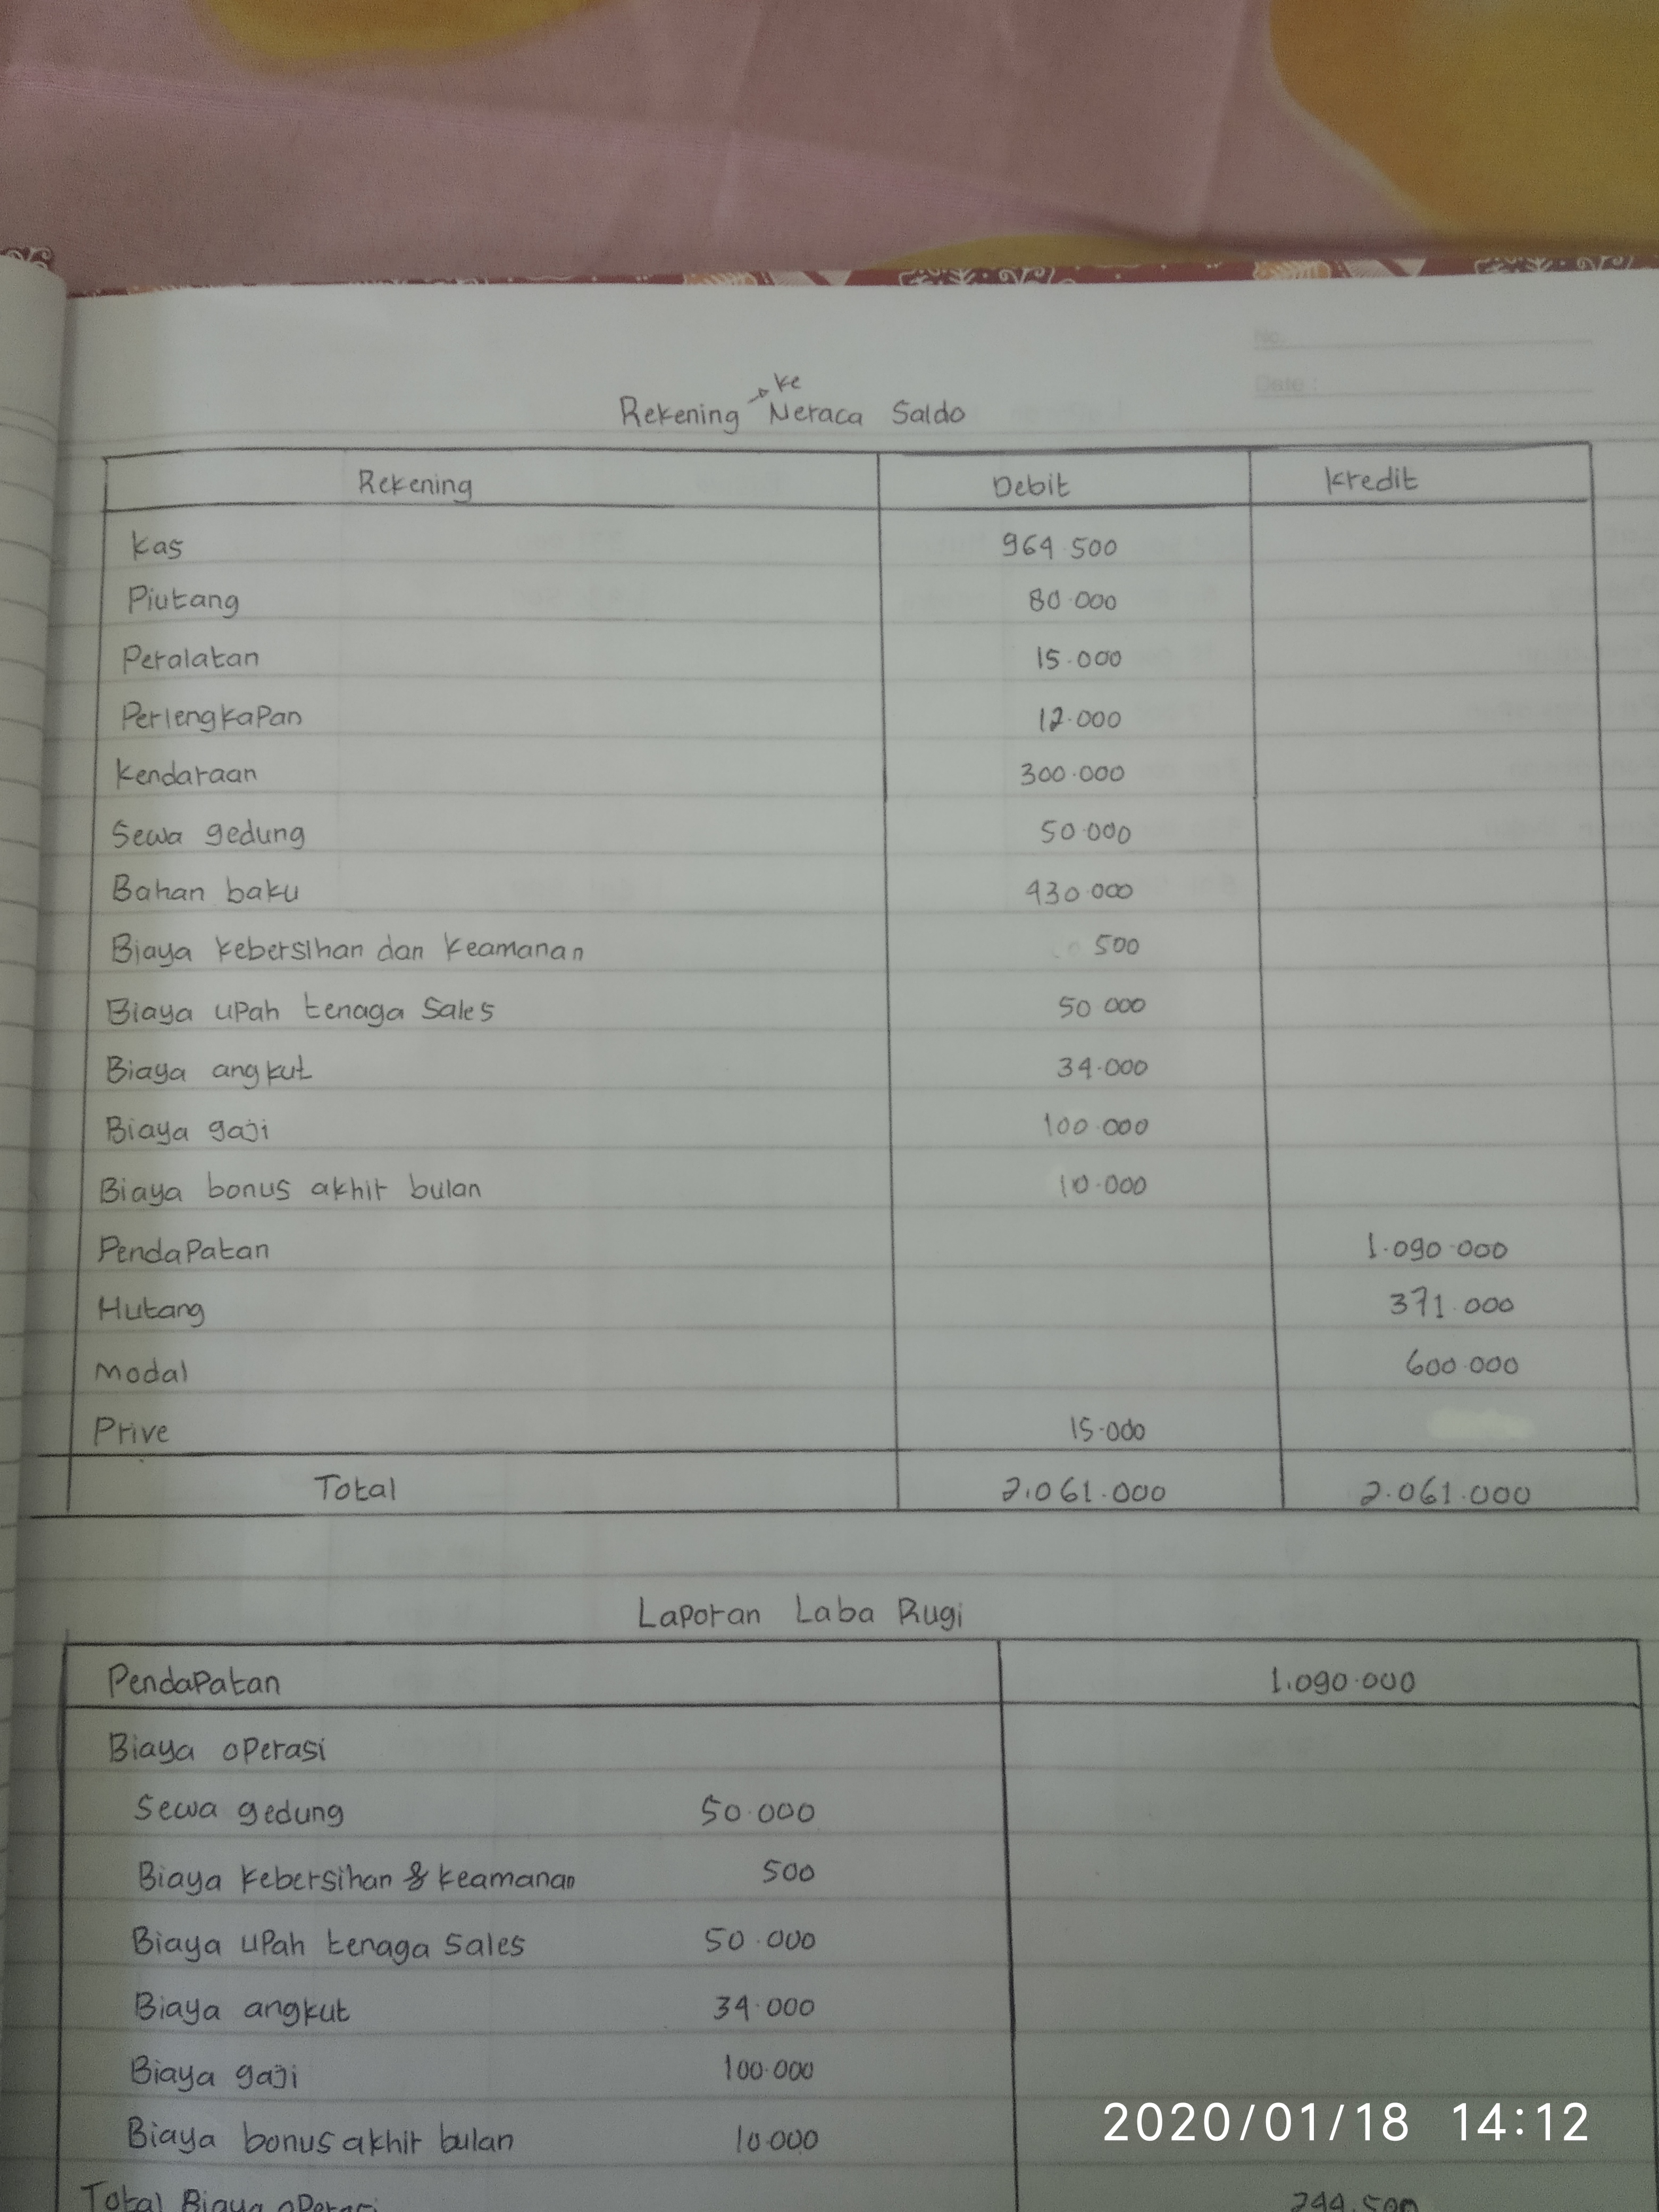 No.
Date :
ke
Rekening Neraca Saldo
Rekening Debit Kredit
Kas 964.500
Piutang 80.000
Peralatan 15.000
Perlengkapan 12.000
Kendaraan 300.000
Sewa gedung 50.000
Bahan baku 430.000
Biaya kebersihan dan keamanan 500
Biaya upah tenaga sales 50.000
Biaya angkut 34.000
Biaya gaji 100.000
Biaya bonus akhir bulan 10.000
Pendapatan 1.090.000
Hutang 371.000
Modal 600.000
Prive 15.000
Total 2.061.000 2.061.000
Laporan Laba Rugi
Pendapatan 1.090.000
Biaya operasi
Sewa gedung 50.000
Biaya kebersihan & keamanan 500
Biaya upah tenaga sales 50.000
Biaya angkut 34.000
Biaya gaji 100.000
Biaya bonus akhir bulan 10.000
Total Biaya operasi 244.500
2020/01/18 14:12